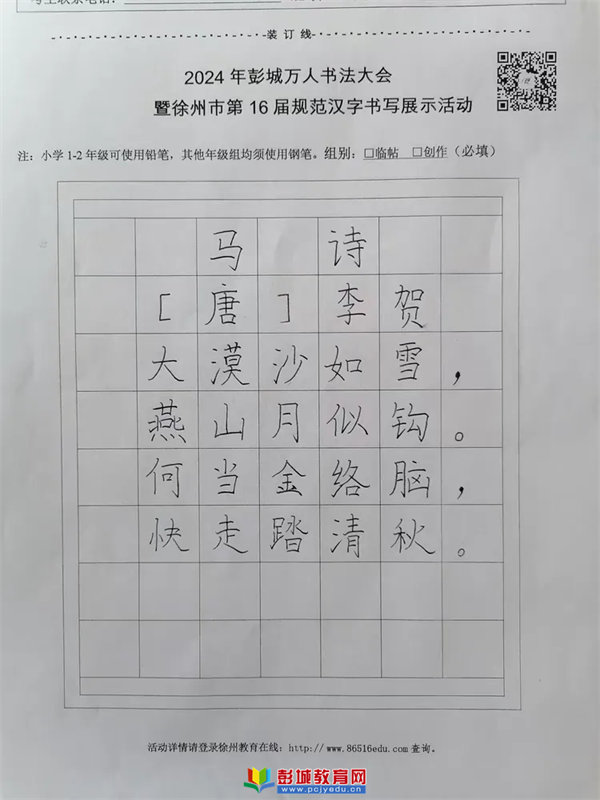 考生联系电话：
装 订 线
2024 年彭城万人书法大会
暨徐州市第 16 届规范汉字书写展示活动
注：小学 1-2 年级可使用铅笔，其他年级组均须使用钢笔。组别：□临帖 □创作（必填）
马 诗
[ 唐 ] 李 贺
大漠沙如雪，
燕山月似钩。
何当金络脑，
快走踏清秋。
活动详情请登录徐州教育在线：http://www.86516edu.com 查询。
彭城教育网
www.pcjyedu.cn